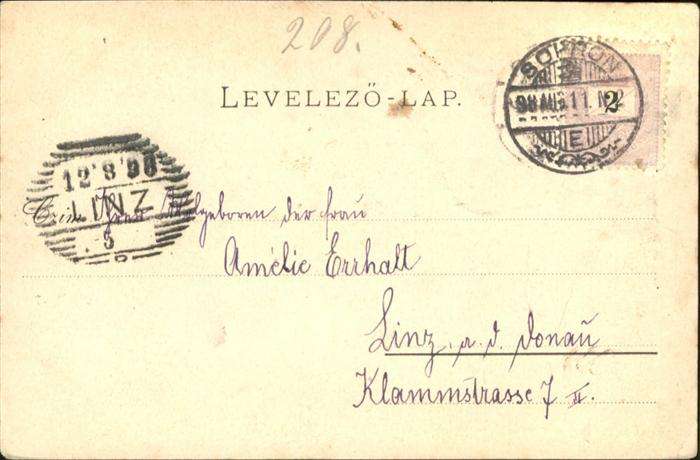 208.
LEVELEZŐ-LAP.
SOPRON
98 AUG. 11. N. 2
E
2
12 8 98
LINZ
5
Czim Ihrer Wolgeboren der frau
Amélie Errhalt
Linz, a. d. Donau
Klammstrasse 7 II.